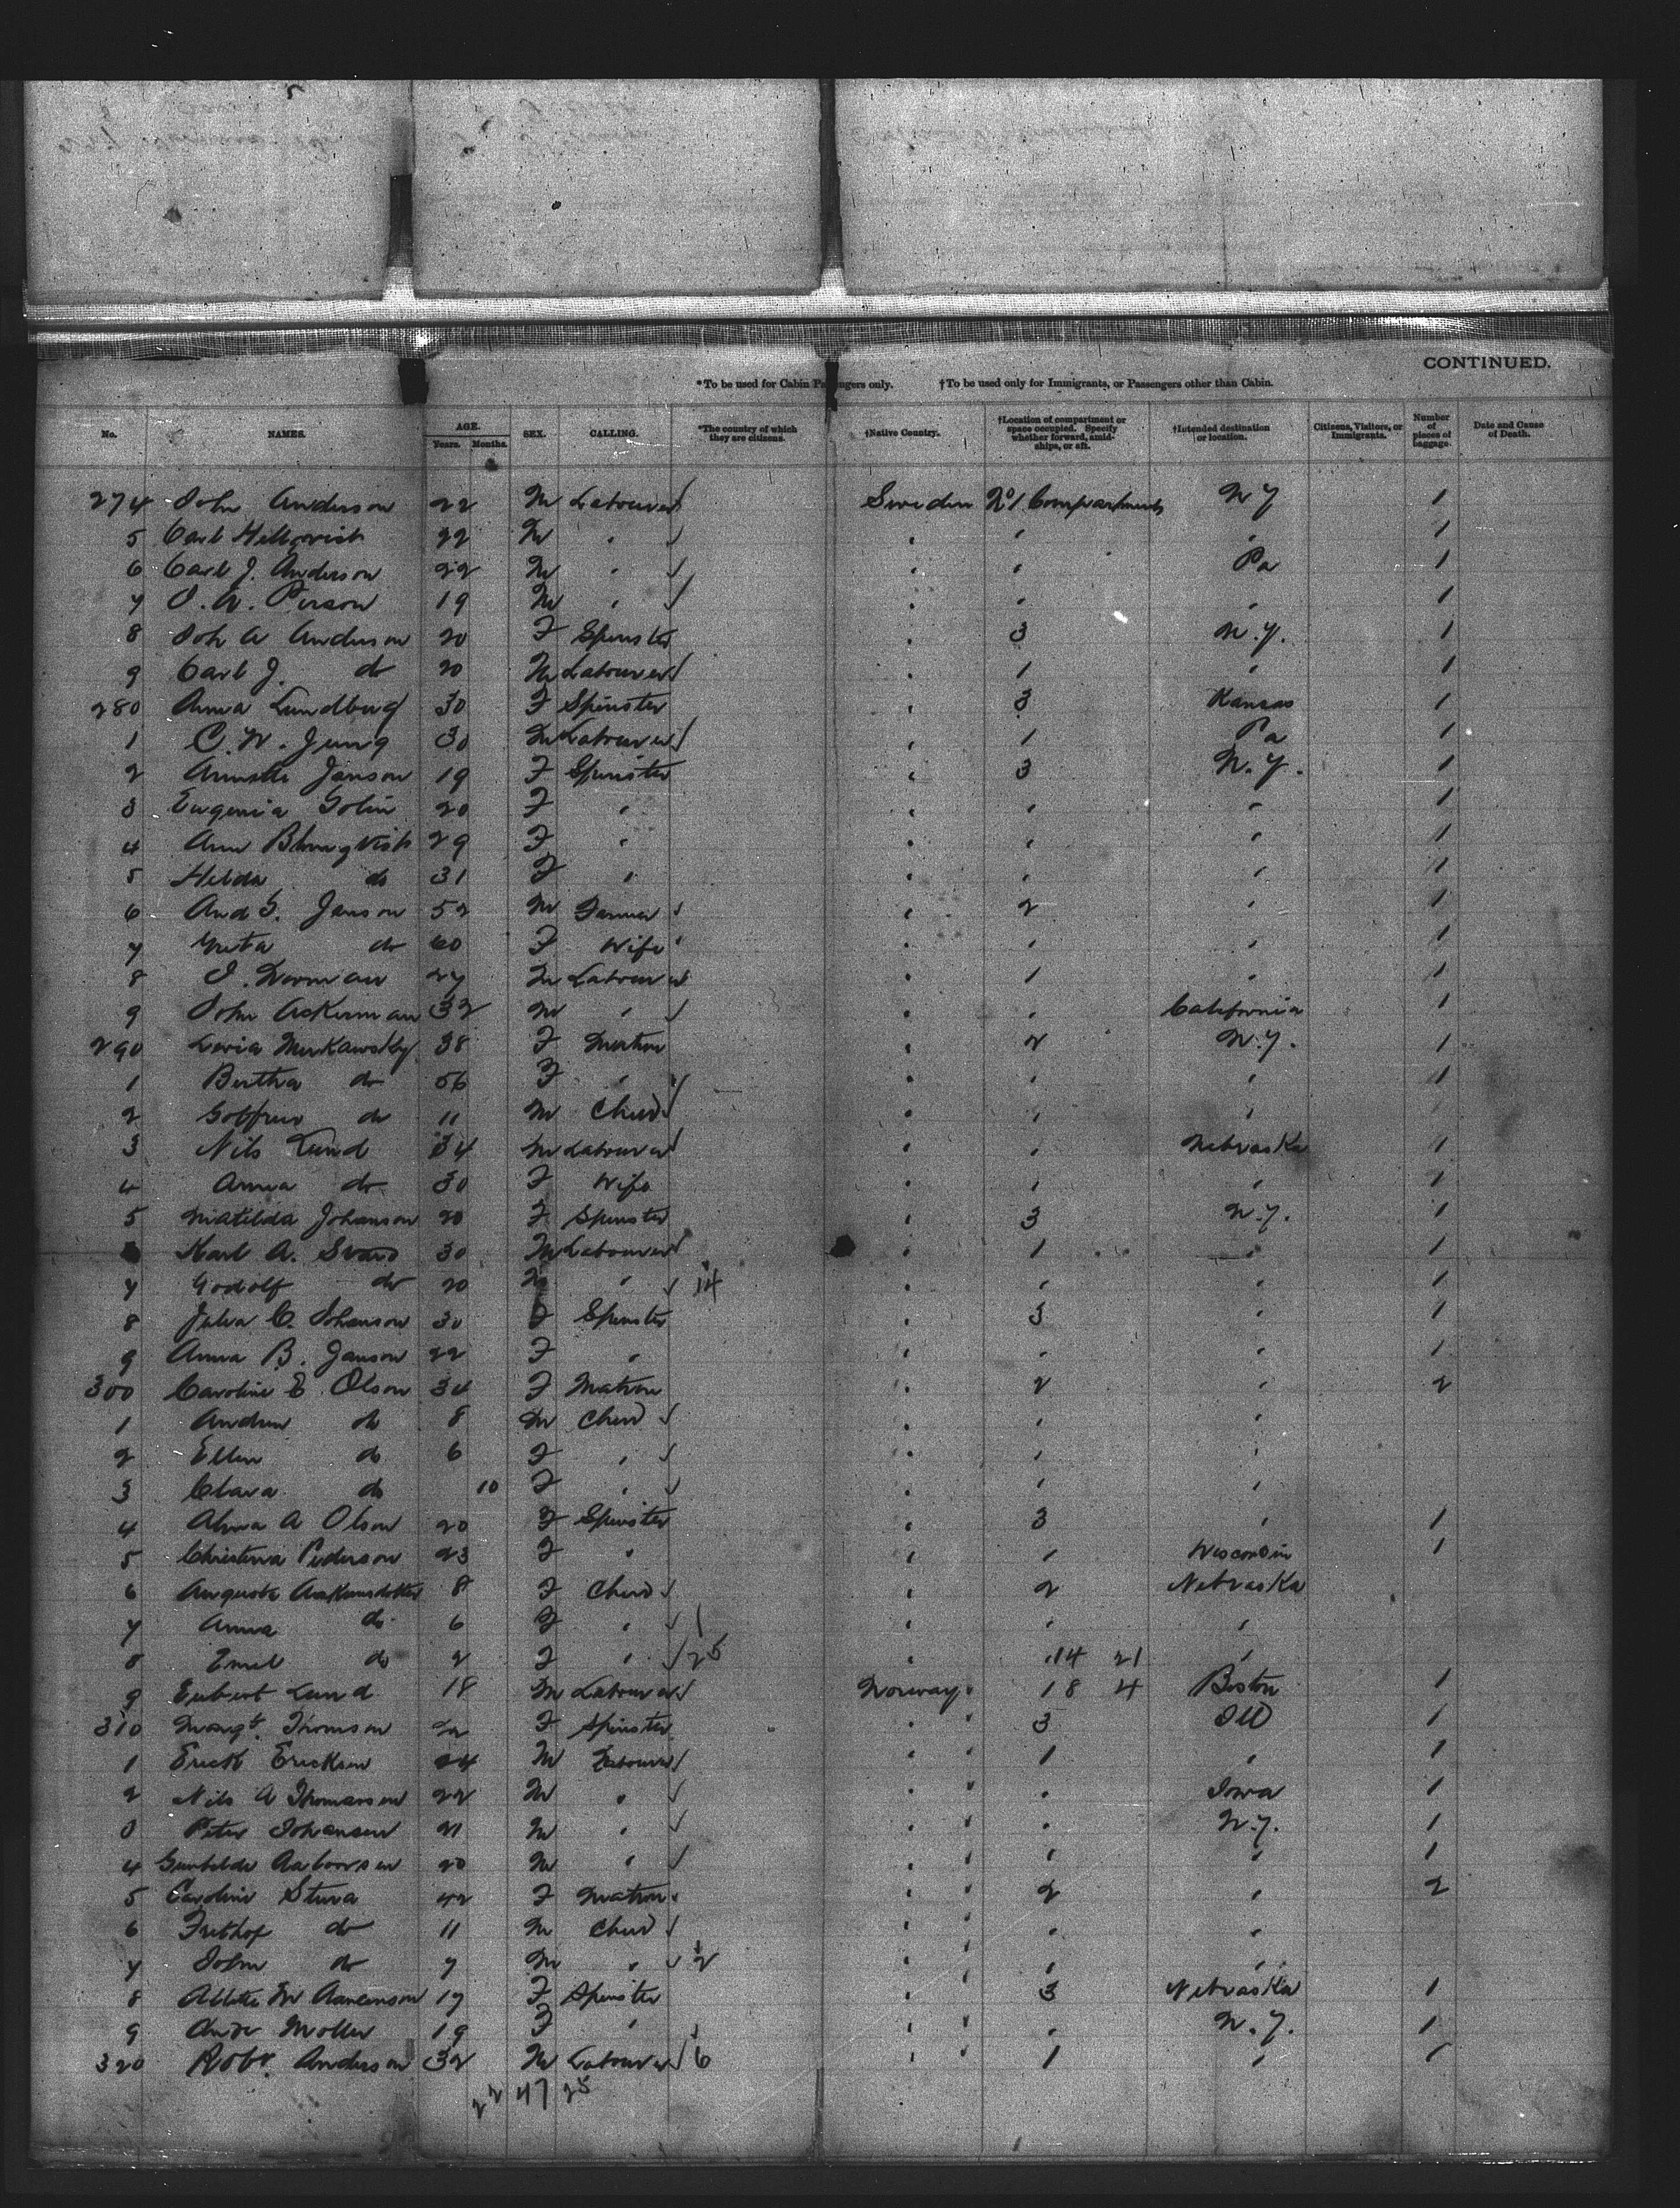 CONTINUED.
*To be used for Cabin Passengers only. †To be used only for Immigrants, or Passengers other than Cabin.
No. NAMES. AGE. Years. Months. SEX. CALLING. *The country of which they are citizens. †Native Country. †Location of compartment or space occupied. Specify whether forward, amidships, or aft. †Intended destination or location. Citizens, Visitors, or Immigrants. Number of pieces of baggage. Date and Cause of Death.
274 John Anderson 22 M Labourer Sweden No 1 Compartment N Y 1
5 Carl Hellqvist 22 M " " " " 1
6 Carl J. Anderson 22 M " " " Pa 1
7 J. A. Person 19 M " " " " 1
8 Joh A Anderson 20 F Spinster " 3 N.Y. 1
9 Carl J. do 20 M Labourer " 1 " 1
280 Anna Lundberg 30 F Spinster " 3 Kansas 1
1 C. W. Jung 30 M Labourer " 1 Pa 1
2 Janson 19 F Spinster " 3 N.Y. 1
3 Eugenia Golin 20 F " " " " 1
4 Ann Blomqvist 29 F " " " " 1
5 Hilda do 31 F " " " " 1
6 And S. Janson 52 M Farmer " 2 " 1
7 Greta do 60 F Wife " " " 1
8 J. Norman 27 M Labourer " 1 " 1
9 John Askerman 32 M " " " California 1
290 Munkawsky 38 F Matron " 2 N.Y. 1
1 Bertha do 56 F " " " " 1
2 do 11 M Child " " "
3 Nils Lund 34 M Labourer " " Nebraska 1
4 Anna do 30 F Wife " " " 1
5 Matilda Johanson 20 F Spinster " 3 N.Y. 1
6 Karl A. Svard 30 M Labourer " 1 " 1
7 Godolf do 20 M " 14 " " " 1
8 Julia C. Johanson 30 F Spinster " 3 " 1
9 Anna B. Janson 22 F " " " " 1
300 Caroline E Olson 34 F Matron " 2 " 2
1 Andrew do 8 M Child " " "
2 Ellen do 6 F " " " "
3 Clara do 10 F " " " "
4 Alma A Olson 20 F Spinster " 3 " 1
5 Christina Pederson 23 F " " " Wisconsin 1
6 Augusta 8 F Child " 2 Nebraska
7 Anna do 6 F " 1 " " "
8 Emil do 2 F " 25 " " 14 21 "
9 Lund 18 M Labourer Norway " 1 8 4 Boston 1
310 Margt. Thomson 22 F Spinster " " 3 Ill 1
1 Erick Ericksen 24 M Labourer " " 1 " 1
2 Nils A Thomassen 22 M " " " " Iowa 1
3 Peter Johansen 21 M " " " " N.Y. 1
4 20 M " " " " " 1
5 Caroline Stura 42 F Matron " " 2 " 2
6 Frithof do 11 M Child " " " "
7 John do 7 M " 2 " " " "
8 17 F Spinster " " 3 Nebraska 1
9 Moller 19 F " " " " N.Y. 1
320 Robt. Anderson 32 M Labourer 6 " " 1 " 1
22 47 25